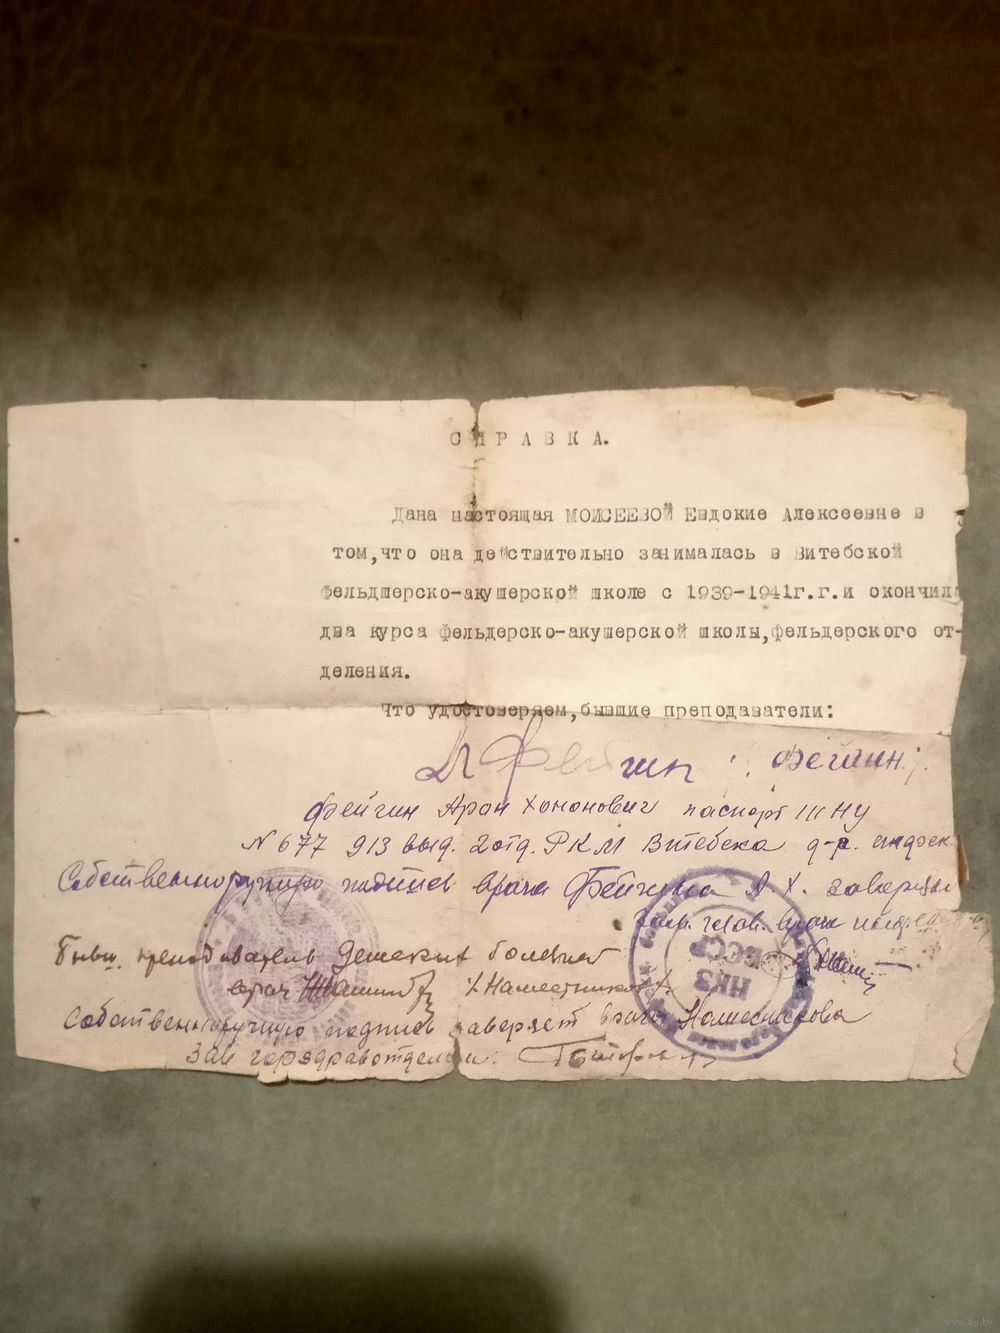 СПРАВКА.
Дана настоящая МОИСЕЕВОЙ Евдокие Алексеевне в
том,что она действительно занималась в Витебской
фельдшерско-акушерской школе с 1939-1941г.г.и окончила
два курса фельдерско-акушерской школы,фельдерского от-
деления.
Что удостоверяем,бывшие преподаватели:
А Фейгин /: Фейгин:/.
Фейгин Арон Хононович паспорт III НУ
N 677 913 выд. 2 отд. РКМ Витебска
Собственноручную подпись врача Фейгина А Х. заверяю
Зам. глав. врач
Бывш. преподаватель Детских болезней
врач /Наместников/
Собственноручную подпись заверяет врача Наместникова
Зав горздравотделом:
НКЗ
БССР
www.ay.by